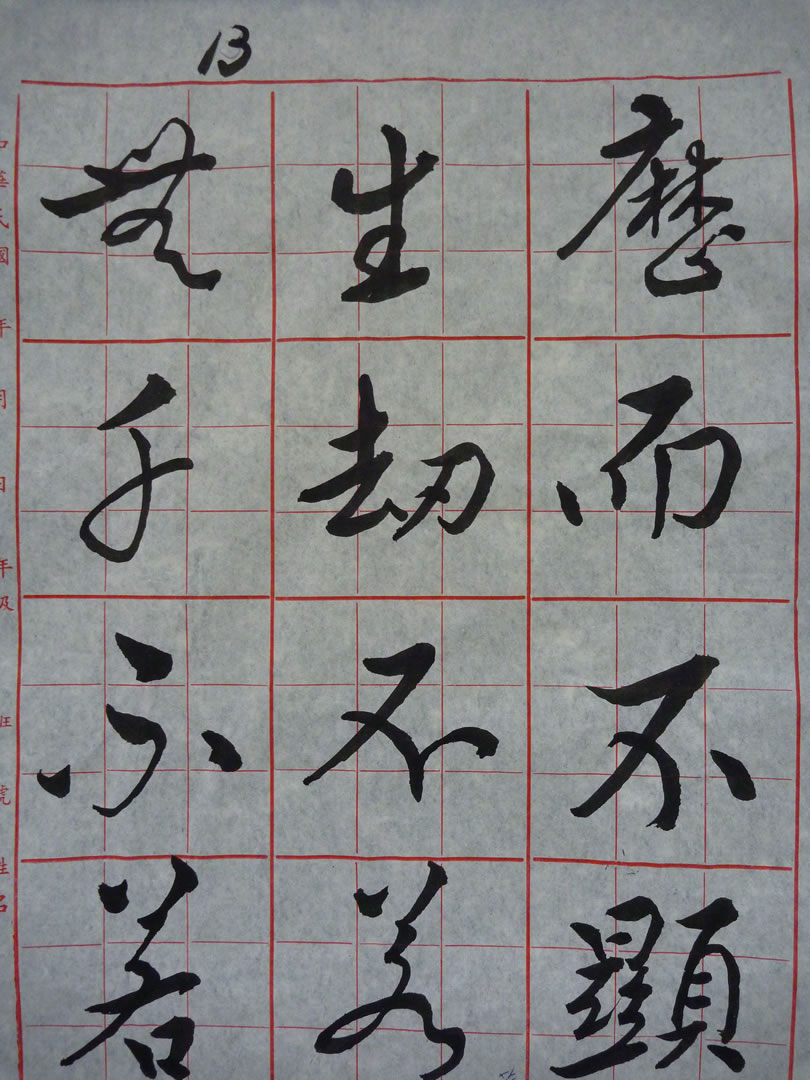 13
無生歷
千劫而
不不不
若若顯
中華民國 年 月 日 年級 班 號 姓名